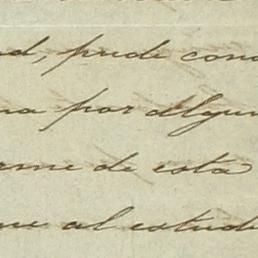 ad, pude cono
na por algun
arme de esta
me al estud